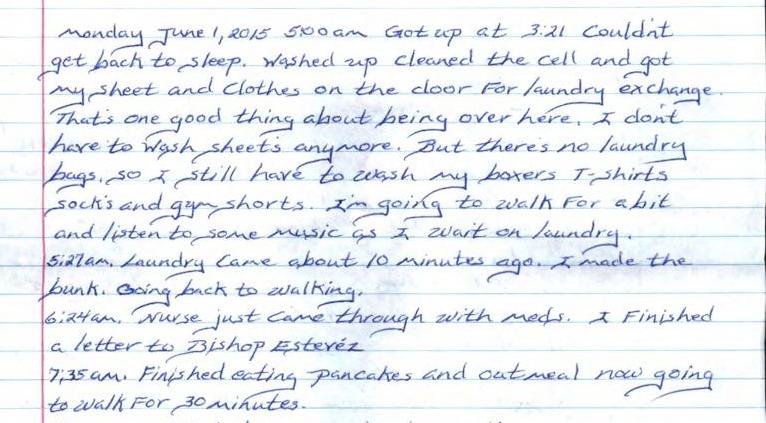 Monday June 1, 2015 5:00am Got up at 3:21 Couldn't
get back to sleep. Washed up cleaned the cell and got
my sheet and Clothes on the door For laundry exchange.
That's one good thing about being over here. I don't
have to wash sheets anymore. But there's no laundry
bags, so I still have to wash my boxers T-shirts
socks and gym shorts. I'm going to walk For a bit
and listen to some music as I wait on laundry.
5:27am. Laundry Came about 10 minutes ago. I made the
bunk. Going back to walking.
6:24am. Nurse just came through with meds. I Finished
a letter to Bishop Estevéz
7:35am. Finished eating pancakes and outmeal now going
to walk For 30 minutes.